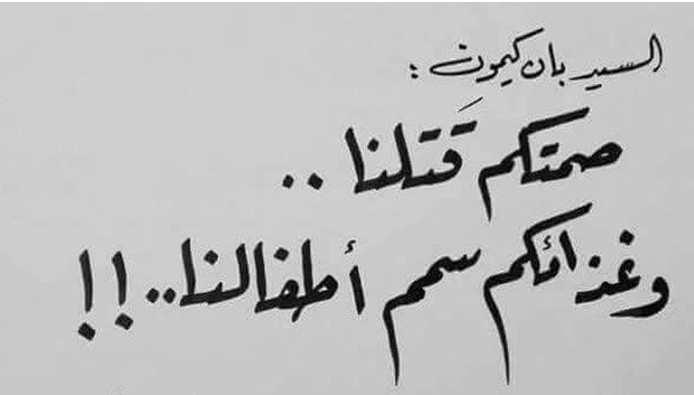 السيد بان كيمون :
صمتكم قَتلنا ..
وغذائكم سمم أطفالنا..!!